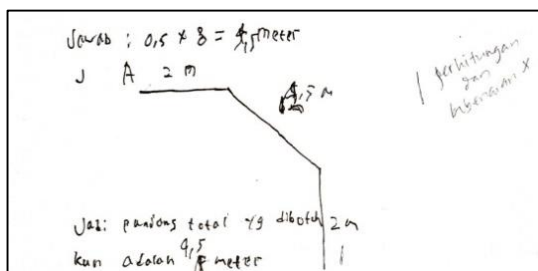 Jawab : 0,5 x 8 = 4,5 meter
J A 2 m
4,5 m
1 perhitungan
dan
x
Jadi panjang total yg dibutuh 2m
kan adalah 4,5 meter